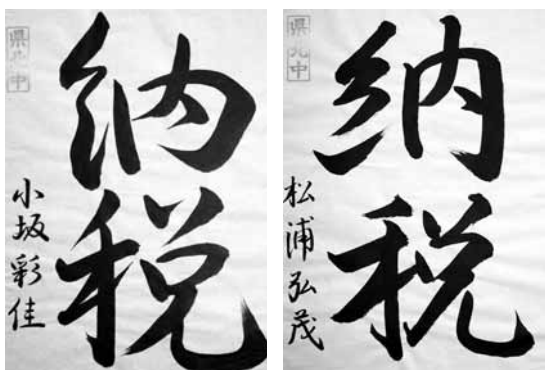 納税
小坂彩佳
納税
松浦弘茂